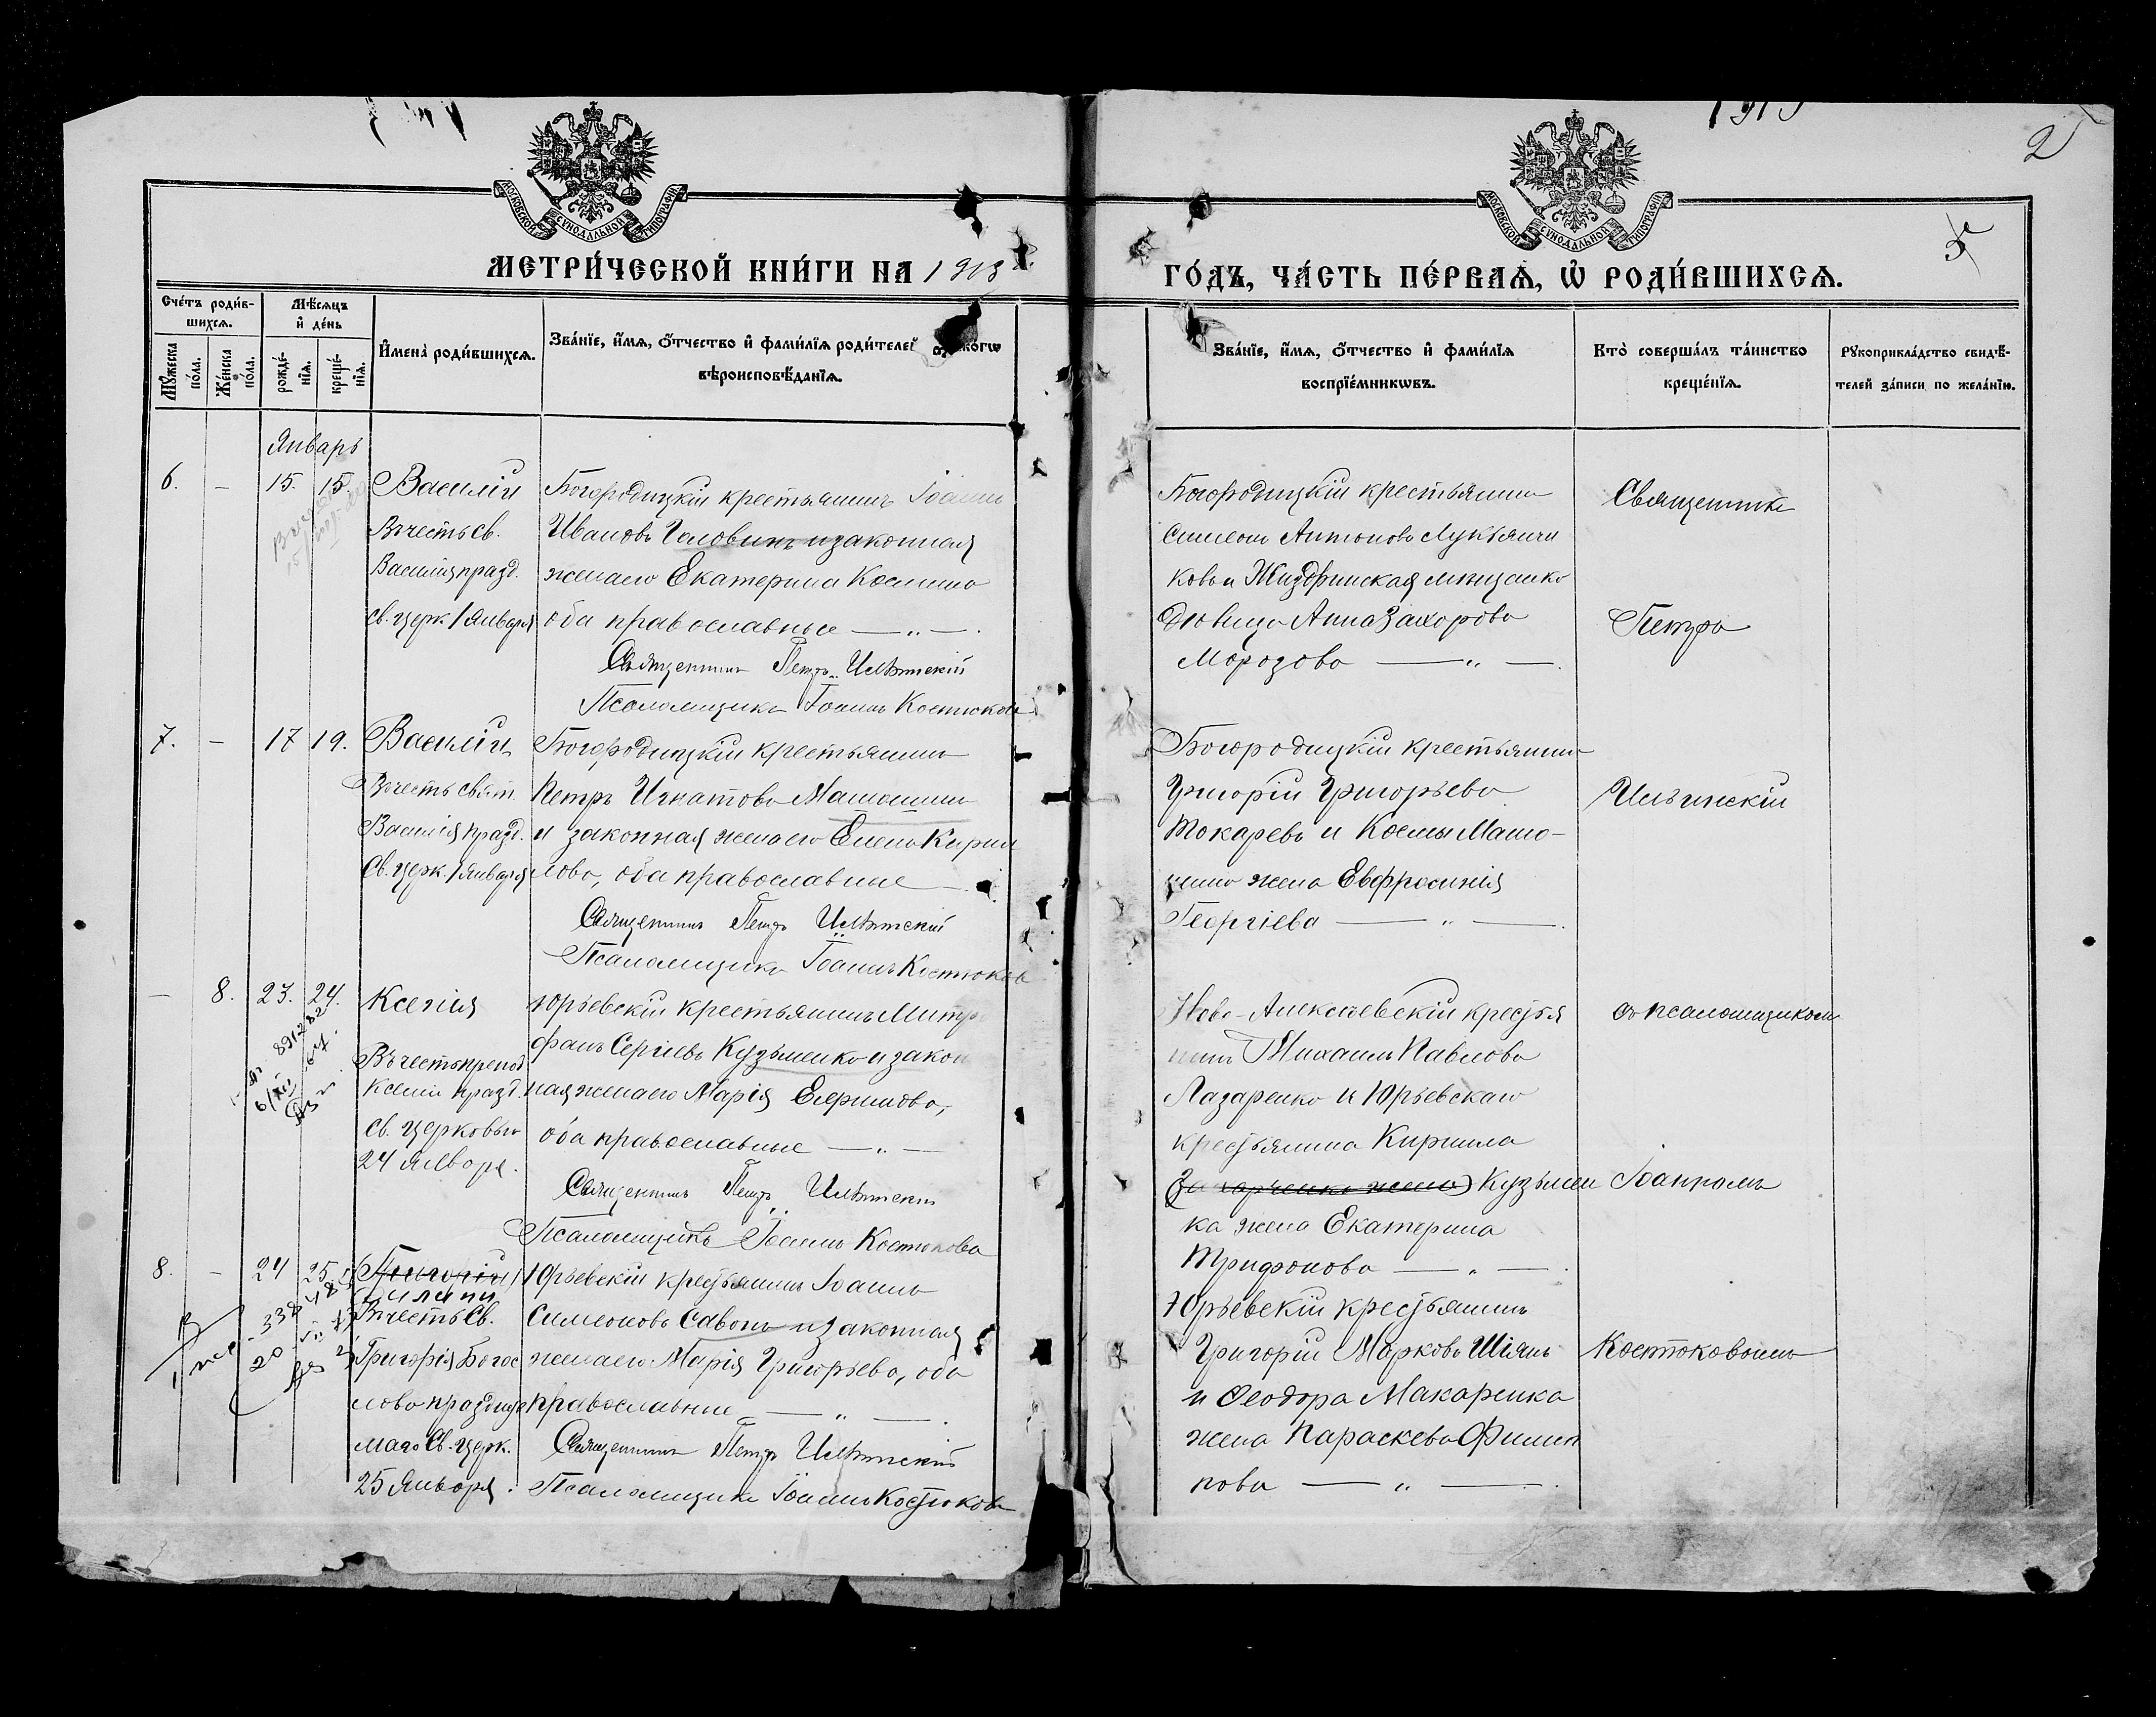 1913
2
5
МОСКОВСКОЙ СУНОДАЛЬНОЙ ТИПОГРАФІИ
МОСКОВСКОЙ СУНОДАЛЬНОЙ ТИПОГРАФІИ
МЕТРИ́ЧЕСКОЙ КНИ́ГИ НА 1913
ГО́ДЪ, ЧА́СТЬ ПЕ́РВАѦ, Ѡ҆ РОДИ́ВШИХСѦ.
Сче́тъ роди́в-
шихсѧ.
Мѣ́сѧцъ
и҆ де́нь
Мꙋ́жеска по́ла.
Же́нска по́ла.
рожде́-
нїѧ.
креще́-
нїѧ.
И҆мена̀ роди́вшихсѧ.
Зва́нїе, и҆́мѧ, ѻ҆́тчество и҆ фами́лїѧ роди́телей
вѣроисповѣ́данїѧ.
Зва́нїе, и҆́мѧ, ѻ҆́тчество и҆ фами́лїѧ
воспрїе́мникѡвъ.
Кто̀ соверша́лъ та́инство
креще́нїѧ.
Рꙋкоприкла́дство свидѣ́-
телей за́писи по жела́нїю.
Январь
6. - 15. 15. Василій
Въ честь св.
Василія празд.
св. церк 1 Января
Богородицкій крестьянинъ Іоаннъ
Ивановъ Головинъ и законная
жена его Екатерина Космина
оба православные — „ —.
Священникъ Петръ Ильинскій
Псаломщикъ Іоаннъ Костюковъ
Богородицкій крестьянинъ
Симеонъ Антоновъ Лукьянчи
ковъ и Жиздринская мѣщанка
дѣвица Анна Захарова
Морозова — „ —.
Священникъ
Петръ
7. - 17 19. Василій
Въ честь свят.
Василія празд.
Св. церк. 1 Января
Богородицкій крестьянинъ
Петръ Игнатовъ Матюшинъ
и законная жена его Елена Кирил
лова, оба православные —.
Священникъ Петръ Ильинскій
Псаломщикъ Іоаннъ Костюковъ
Богородицкій крестьянинъ
Григорій Григорьевъ
Токаревъ и Космы Матю-
шина жена Евфросинія
Георгіева — „ —.
Ильинскій
- 8. 23. 24. Ксенія
Въ честь препод
Ксеніи празд.
св. церковью
24 Января.
Юрьевскій крестьянинъ Митро
фанъ Сергіевъ Кузьменко и закон
ная жена его Марія Ефимова,
оба православные — „ —
Священникъ Петръ Ильинскій
Псаломщикъ Іоаннъ Костюковъ
Ново-Алексѣевскій крестья
нинъ Михаилъ Павловъ
Лазаренко и Юрьевскаго
крестьянина Кирилла
(Захарченка жена) Кузьмен
ка жена Екатерина
Трифонова — „ —.
съ псаломщикомъ
Іоанномъ
8. - 24 25. Григорій
Въ честь Св.
Григорія Богос
лова праздну
маго Св. церк.
25 Января.
Юрьевскій крестьянинъ Іоаннъ
Симеоновъ Савонъ и законная
жена его Марія Григорьева, оба
православные — „ —.
Священникъ Петръ Ильинскій
Псаломщикъ Іоаннъ Костюковъ
Юрьевскій крестьянинъ
Григорій Марковъ Шіянъ
и Ѳеодора Макаренка
жена Параскева Филип
пова — „ —.
Костюковымъ